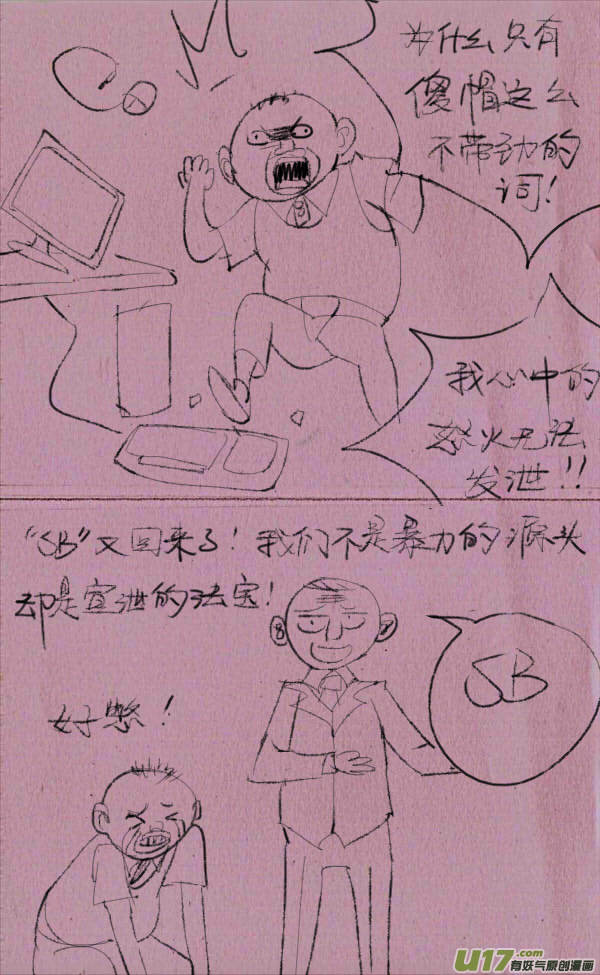 为什么只有
傻帽这么
不带劲的
词!
我心中的
怒火无法
发泄!!
"SB"又回来了!我们不是暴力的源头
却是宣泄的法宝!
SB
好憋!
U17.com
有妖气原创漫画